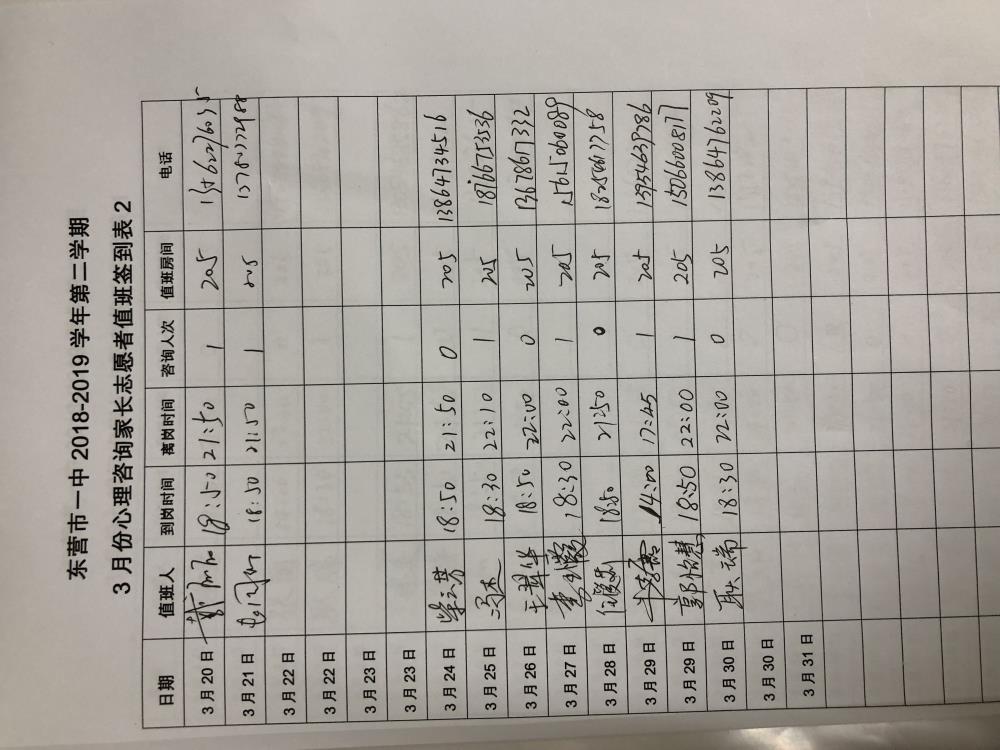 东营市一中 2018-2019 学年第二学期
3 月份心理咨询家长志愿者值班签到表 2
日期 值班人 到岗时间 离岗时间 咨询人次 值班房间 电话
3 月 20 日 18:50 21:50 1 205
3 月 21 日 18:50 21:50 1 205
3 月 22 日
3 月 22 日
3 月 23 日
3 月 23 日
3 月 24 日 18:50 21:50 0 205 13864734516
3 月 25 日 18:30 22:10 1 205 18766753536
3 月 26 日 王翠华 18:50 22:00 0 205 13678617332
3 月 27 日 18:30 22:00 1 205 15615060089
3 月 28 日 1850 2150 0 205
3 月 29 日 14:00 17:45 1 205 13954639786
3 月 29 日 18:50 22:00 1 205 15066008177
3 月 30 日 耿瑞 18:30 22:00 0 205 13864762209
3 月 30 日
3 月 31 日